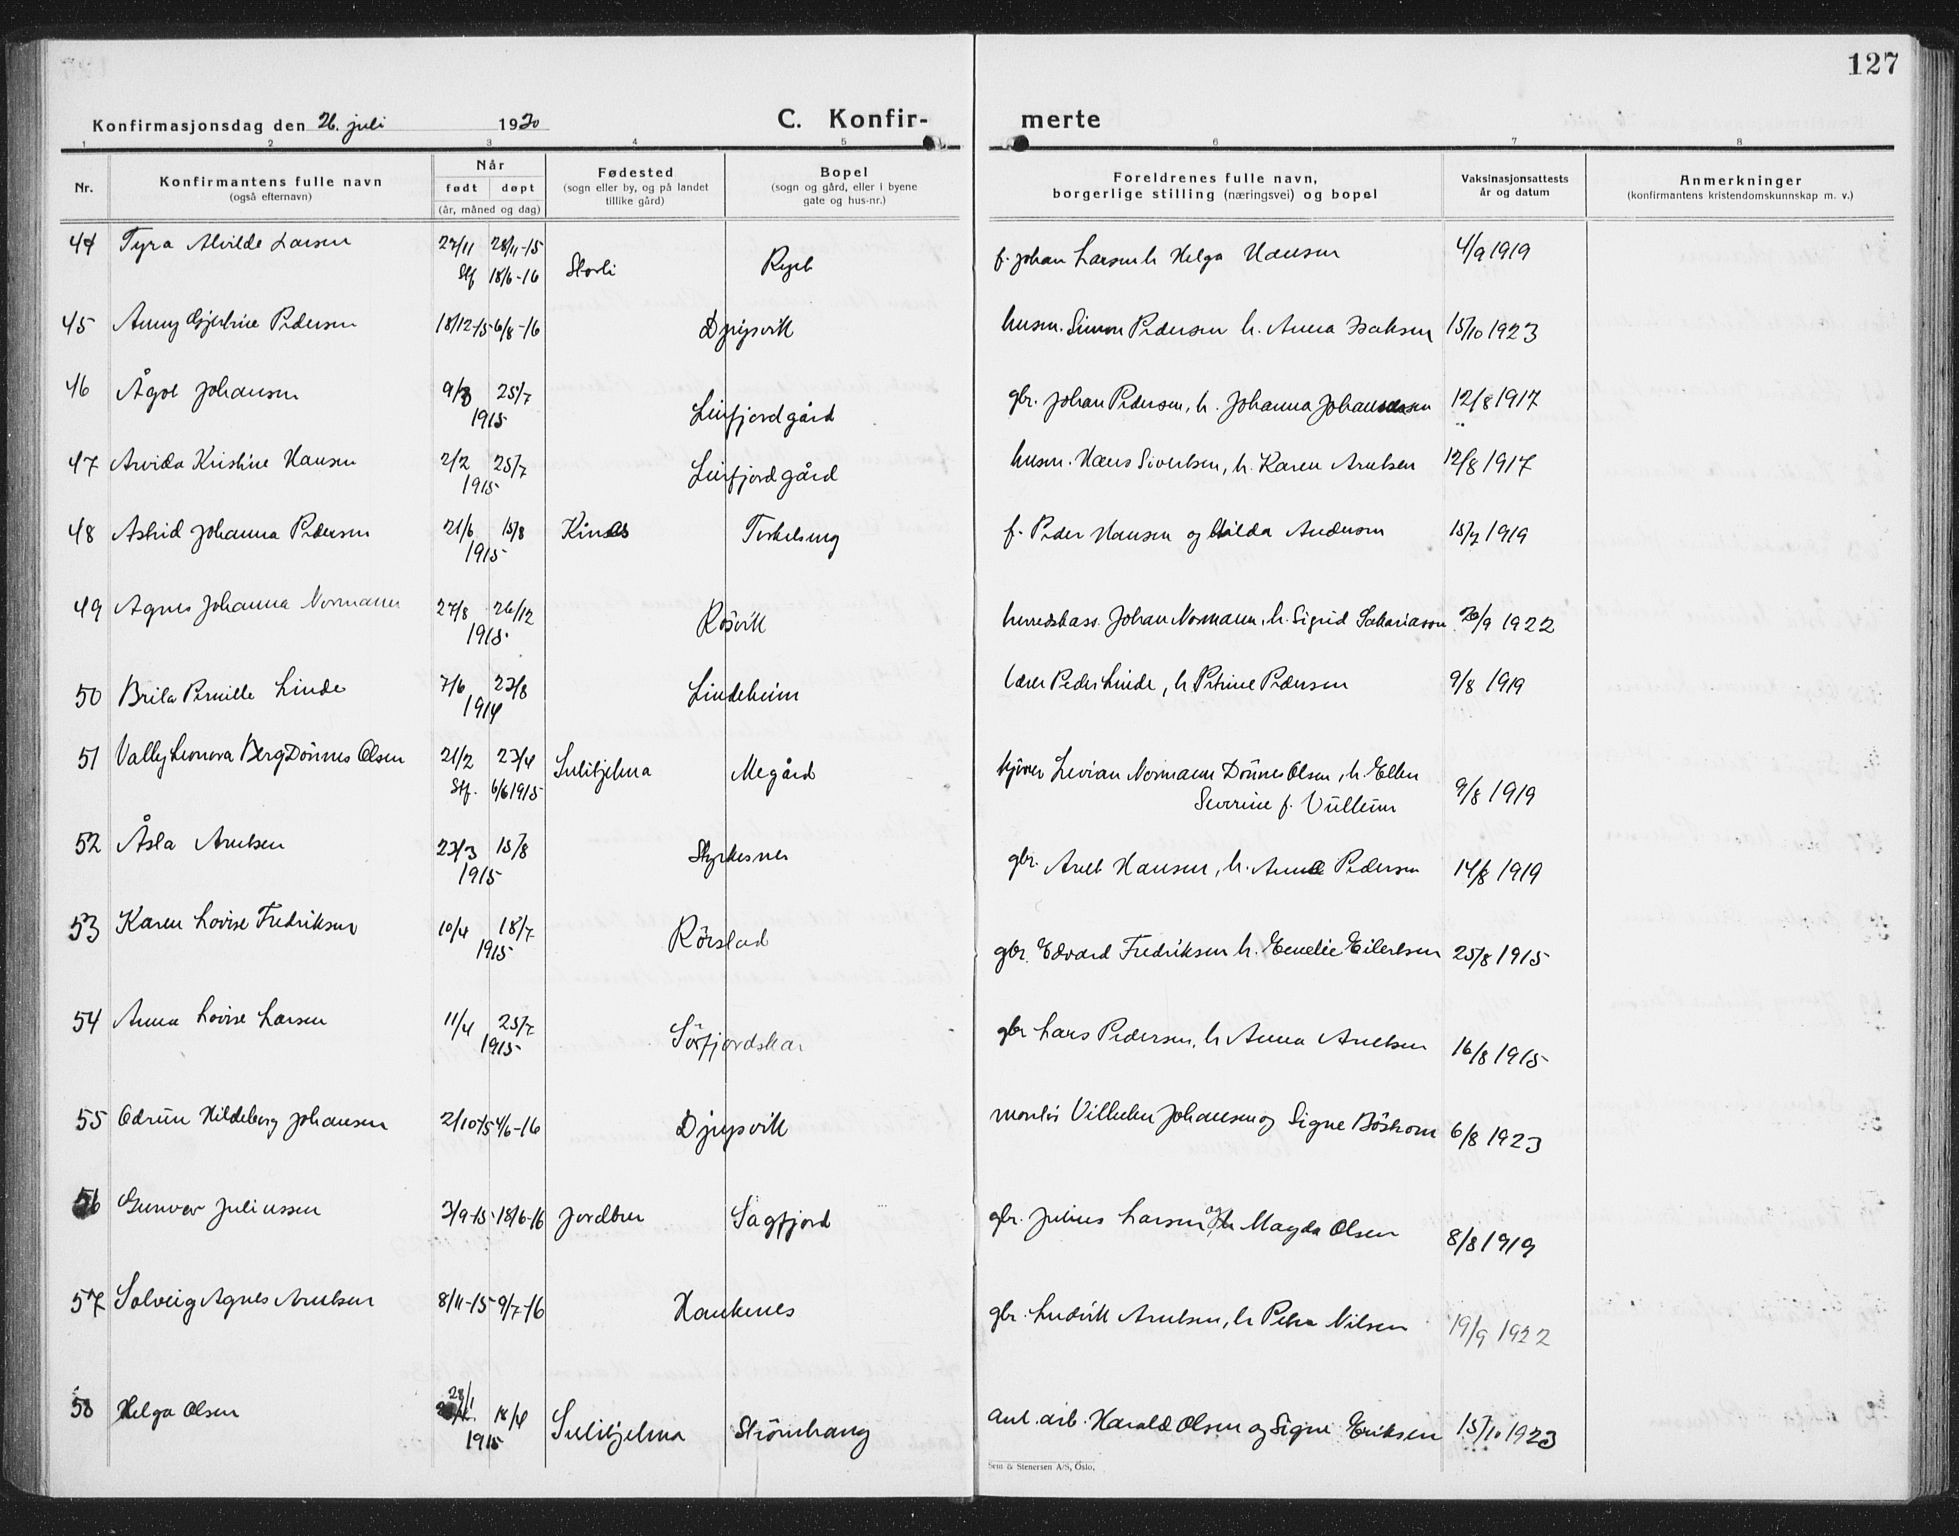 127
Konfirmasjonsdag den 26. juli 1930 C. Konfir- merte
1 2 3 4 5 6 7 8
Nr. Konfirmantens fulle navn (også efternavn)
Når født døpt (år, måned og dag)
Fødested (sogn eller by, og på landet tillike gård)
Bopel (sogn og gård, eller i byene gate og hus-nr.)
Foreldrenes fulle navn, borgerlige stilling (næringsvei) og bopel
Vaksinasjonsattests år og datum
Anmerkninger (konfirmantens kristendomskunnskap m. v.)
44 Tyra Alvilde Larsen 27/11 28/11-15 f. Johan Larsen h Helga Hansen 4/9 1919
Stf 18/6-16 Storli
45 Anny Gjertine Pedersen 18/12-15 6/8-16 Djupvik husm. Simon Pedersen h. Anna Isaksen 15/10 1923
46 Ågot Johansen 9/3 25/7 1915 Leirfjordgård gbr. Johan Pedersen, h. Johanna Johannessen 12/8 1917
47 Arvida Kristine Hansen 2/2 25/7 1915 Leirfjordgård husm. Hans Sivertsen, h. Karen Arntsen 12/8 1917
48 Astrid Johanna Pedersen 21/6 15/8 1915 Kines Torkelseng f. Peder Hansen og Hilda Andersen 15/7 1919
49 Agnes Johanna Normann 27/8 26/12 1915 Rösvik herredskass. Johan Normann, h. Sigrid Sakariasson 20/9 1922
50 Brita Pernille Linde 7/6 23/8 1914 Lindeheim lærer Peder Linde, h Petrine Pedersen 9/8 1919
51 Vally Leonora Berg Dönnes Olsen 21/2 23/4 Sulitjelma Megård kjörer Levian Normann Dönnes Olsen, h. Ellen
Stf. 6/6 1915 Severine f. Vullum 9/8 1919
52 Åsla Arntsen 23/3 15/8 1915 Styrkesnes gbr. Arnt Hansen, h. Anna Pedersen 14/8 1919
53 Karen Lovise Fredriksen 10/4 18/7 1915 Rörstad gbr. Edvard Fredriksen h. Emelie Eilertsen 25/8 1915
54 Anna Lovise Larsen 11/4 25/7 1915 Sörfjordskar gbr Lars Pedersen, h Anna Arntsen 16/8 1915
55 Odrun Hildeborg Johansen 2/10-15 4/6-16 Djupvik montör Vilhelm Johansen og Signe Böstrom 6/8 1923
56 Gunvor Juliussen 3/9-15 18/6-16 Jordbru Sagfjord gbr. Julius Larsen og h Magda Olsen 8/8 1919
57 Solveig Agnes Arntsen 8/11-15 9/7-16 Haukenes gbr. Ludvik Arntsen, h Petra Nilsen 19/9 1922
58 Helga Olsen 28/1 18/4 1915 Sulitjelma Strömhaug anl. arb. Harald Olsen og Signe Eriksen 15/10 1923
Sem & Stenersen A/S, Oslo.